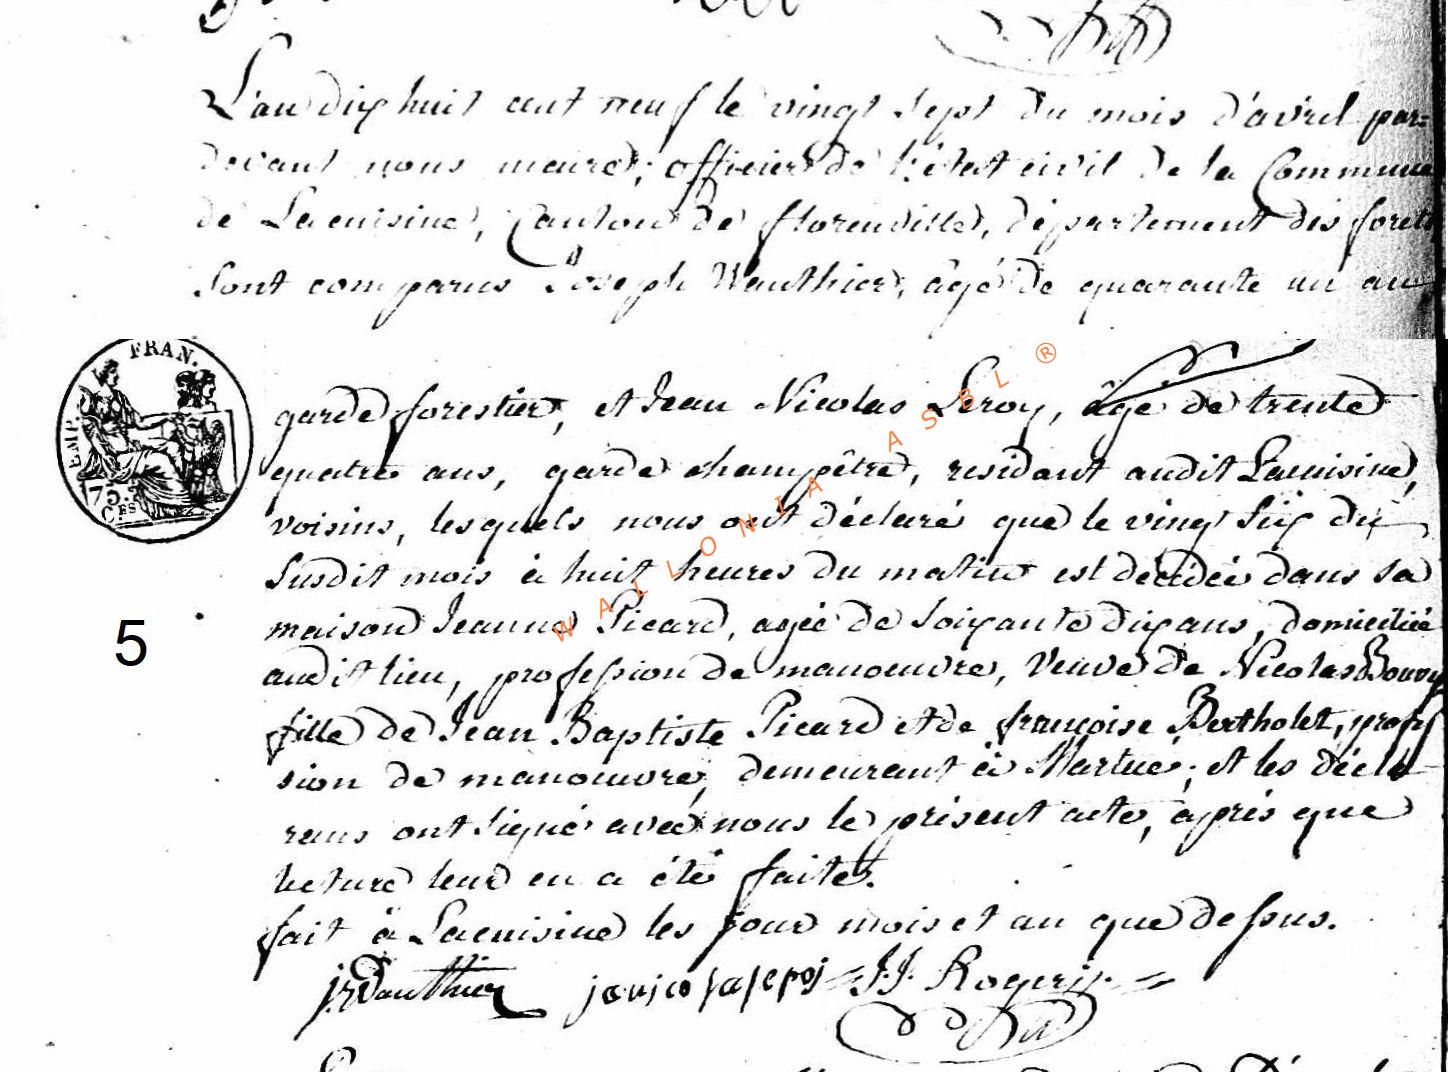 L'an dix huit cent neuf le vingt sept du mois d'avril par=
devant nous maire, officier de l'état civil de la Commune
de Lacuisine, Canton de florenville, département des forets
Sont comparus Joseph Wauthier, âgé de quarante un an
FRAN.
EMP.
75.
C.ES
garde forestier, et Jean Nicolas Leroy, âgé de trente
quatre ans, garde champêtre, residant audit Lacuisine,
voisins, lesquels nous ont déclaré que le vingt six du
susdit mois à huit heures du matin est décédée dans sa
5
maison Jeanne Picard, agée de soixante dix ans, domiciliée
audit lieu, profession de manoeuvre, Veuve de Nicolas Bouvy
fille de Jean Baptiste Picard et de françoise Bertholet, profes
sion de manoeuvre, demeurant à Martué, et les décla
rans ont signé avec nous le présent acte, après que
lecture leur en a été faite.
fait à Lacuisine les jour mois et an que dessus.
Wauthier
WALLONIA ASBL ®